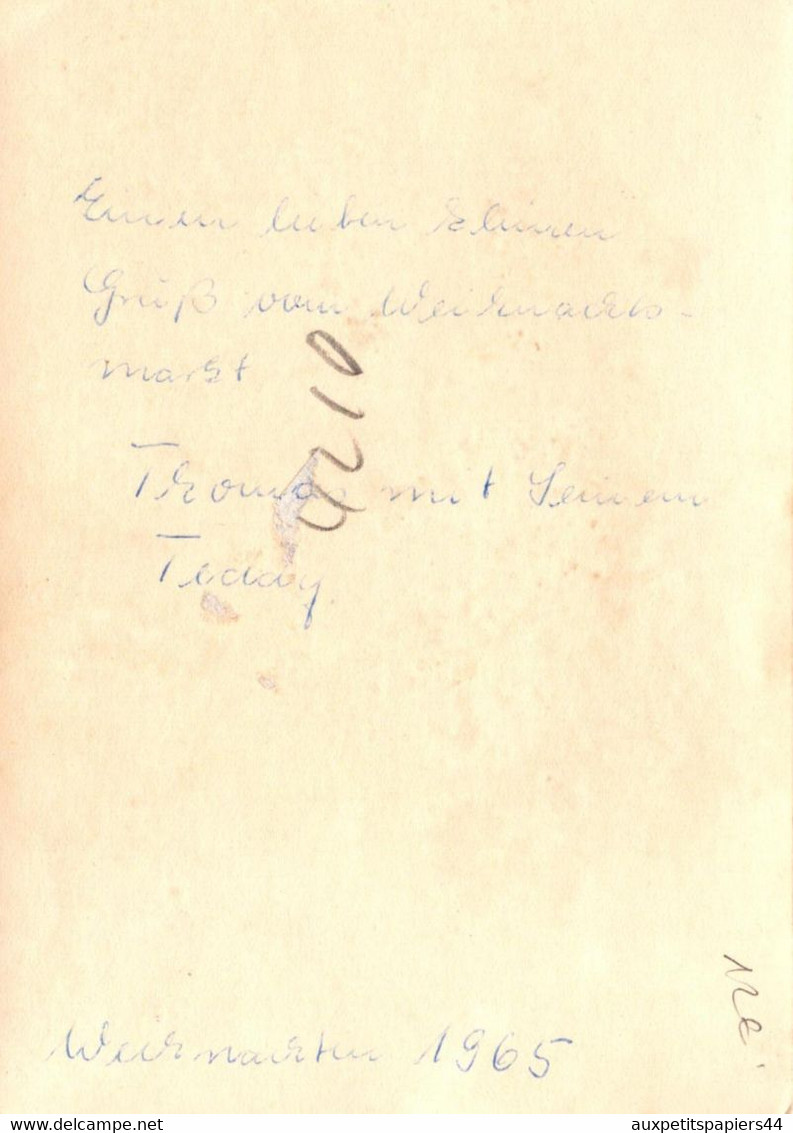 Einen lieben kleinen
Gruß vom Weihnachts-
markt
Thomas mit Seinem
Teddy.
4210
Weihnachten 1965
DELCAMPE.NET
auxpetitspapiers44